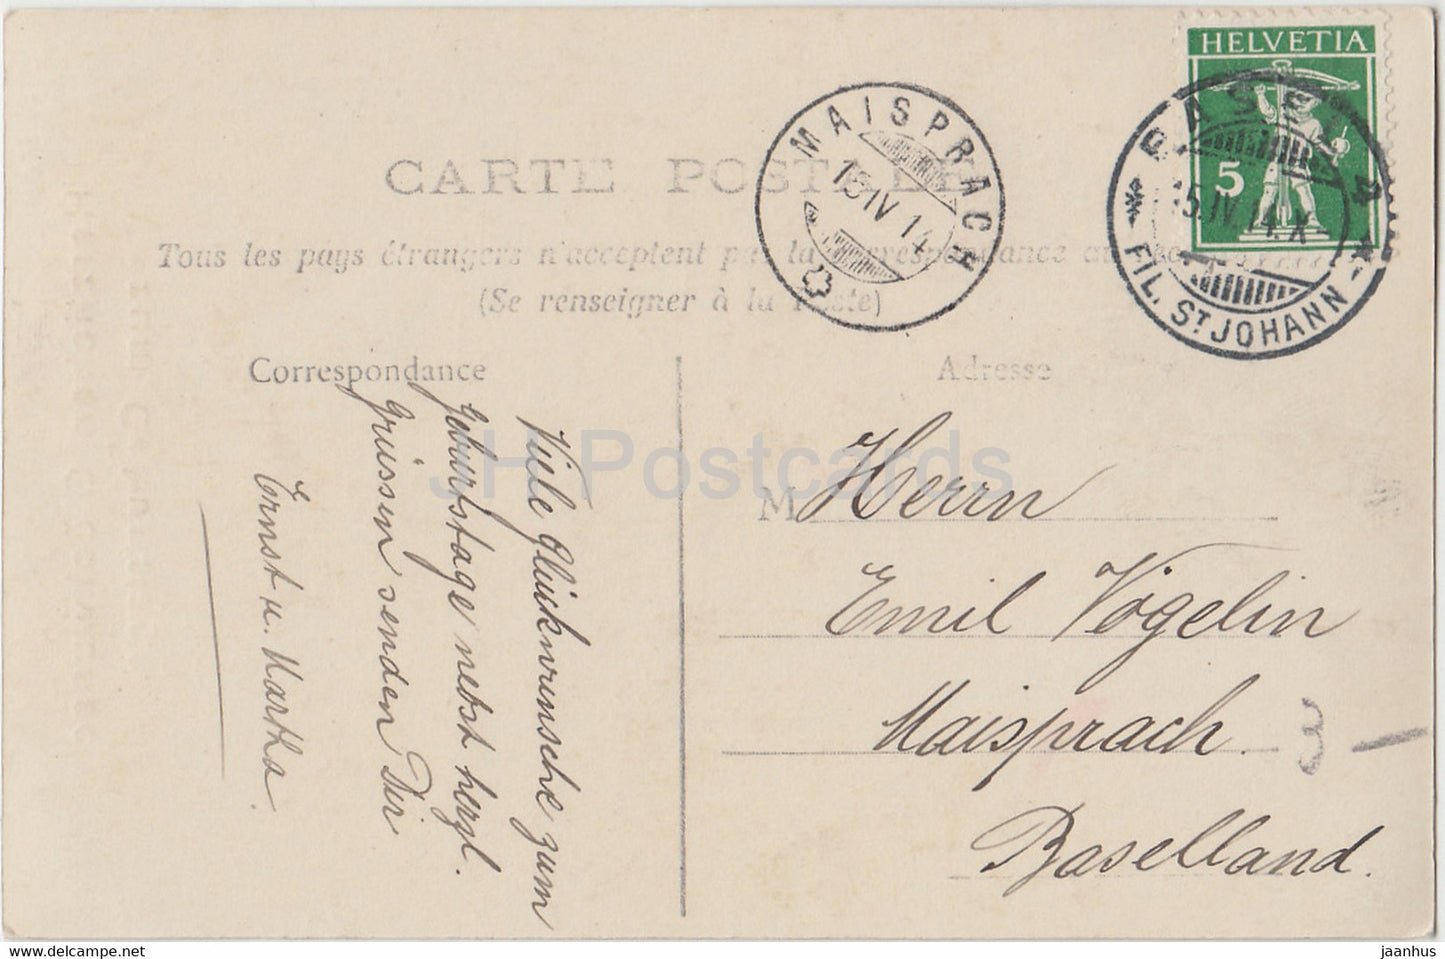 CARTE POSTALE
Tous les pays étrangers n'acceptent pas la Correspondance au
(Se renseigner à la Poste)
Correspondance
Adresse
HELVETIA
5
BASEL 2
15.IV.14.X-
FIL. ST JOHANN
MAISPRACH
15 IV 14
Viele Glückwünsche zum
Geburtstage, nebst herzl.
Grüssen senden Dir
Ernst u. Martha.
M
Herrn
Emil Vögelin
Maisprach.
Baselland.
3 –
JH Postcards
www.hippostcard.com
jaanhus